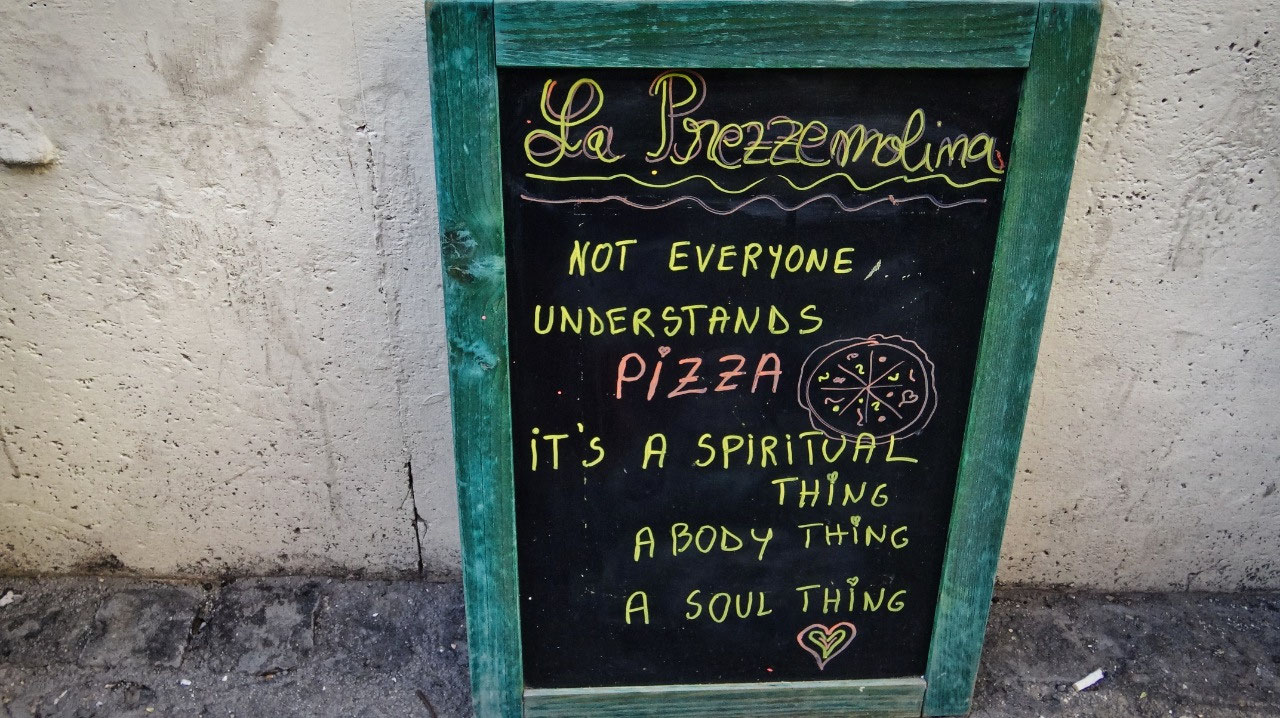 La Prezzemolina
NOT EVERYONE,
UNDERSTANDS
PiZZA
iT'S A SPiRiTUAL
THiNG
A BODY THiNG
A SOUL THiNG